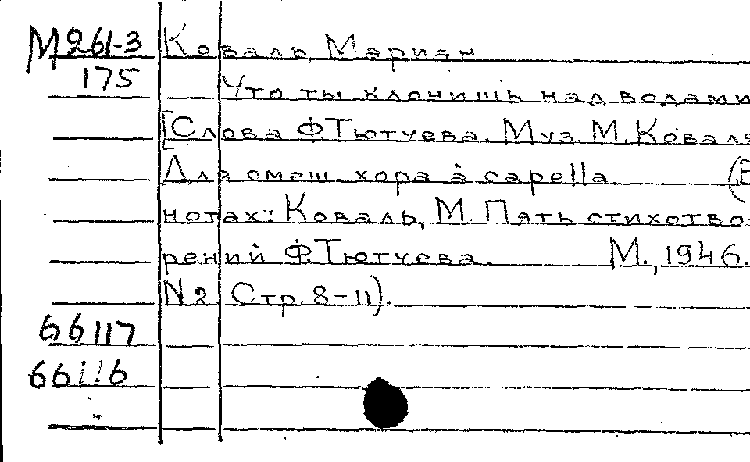 М261-3 Коваль, Мариан
175 Что ты клонишь над водами
[Слова Ф.Тютчева. Муз. М.Коваля
Для смеш. хора à capella. (В
нотах: Коваль, М. Пять стихотво-
рений Ф.Тютчева. М., 1946.
N2 Стр. 8-11).
66117
66116